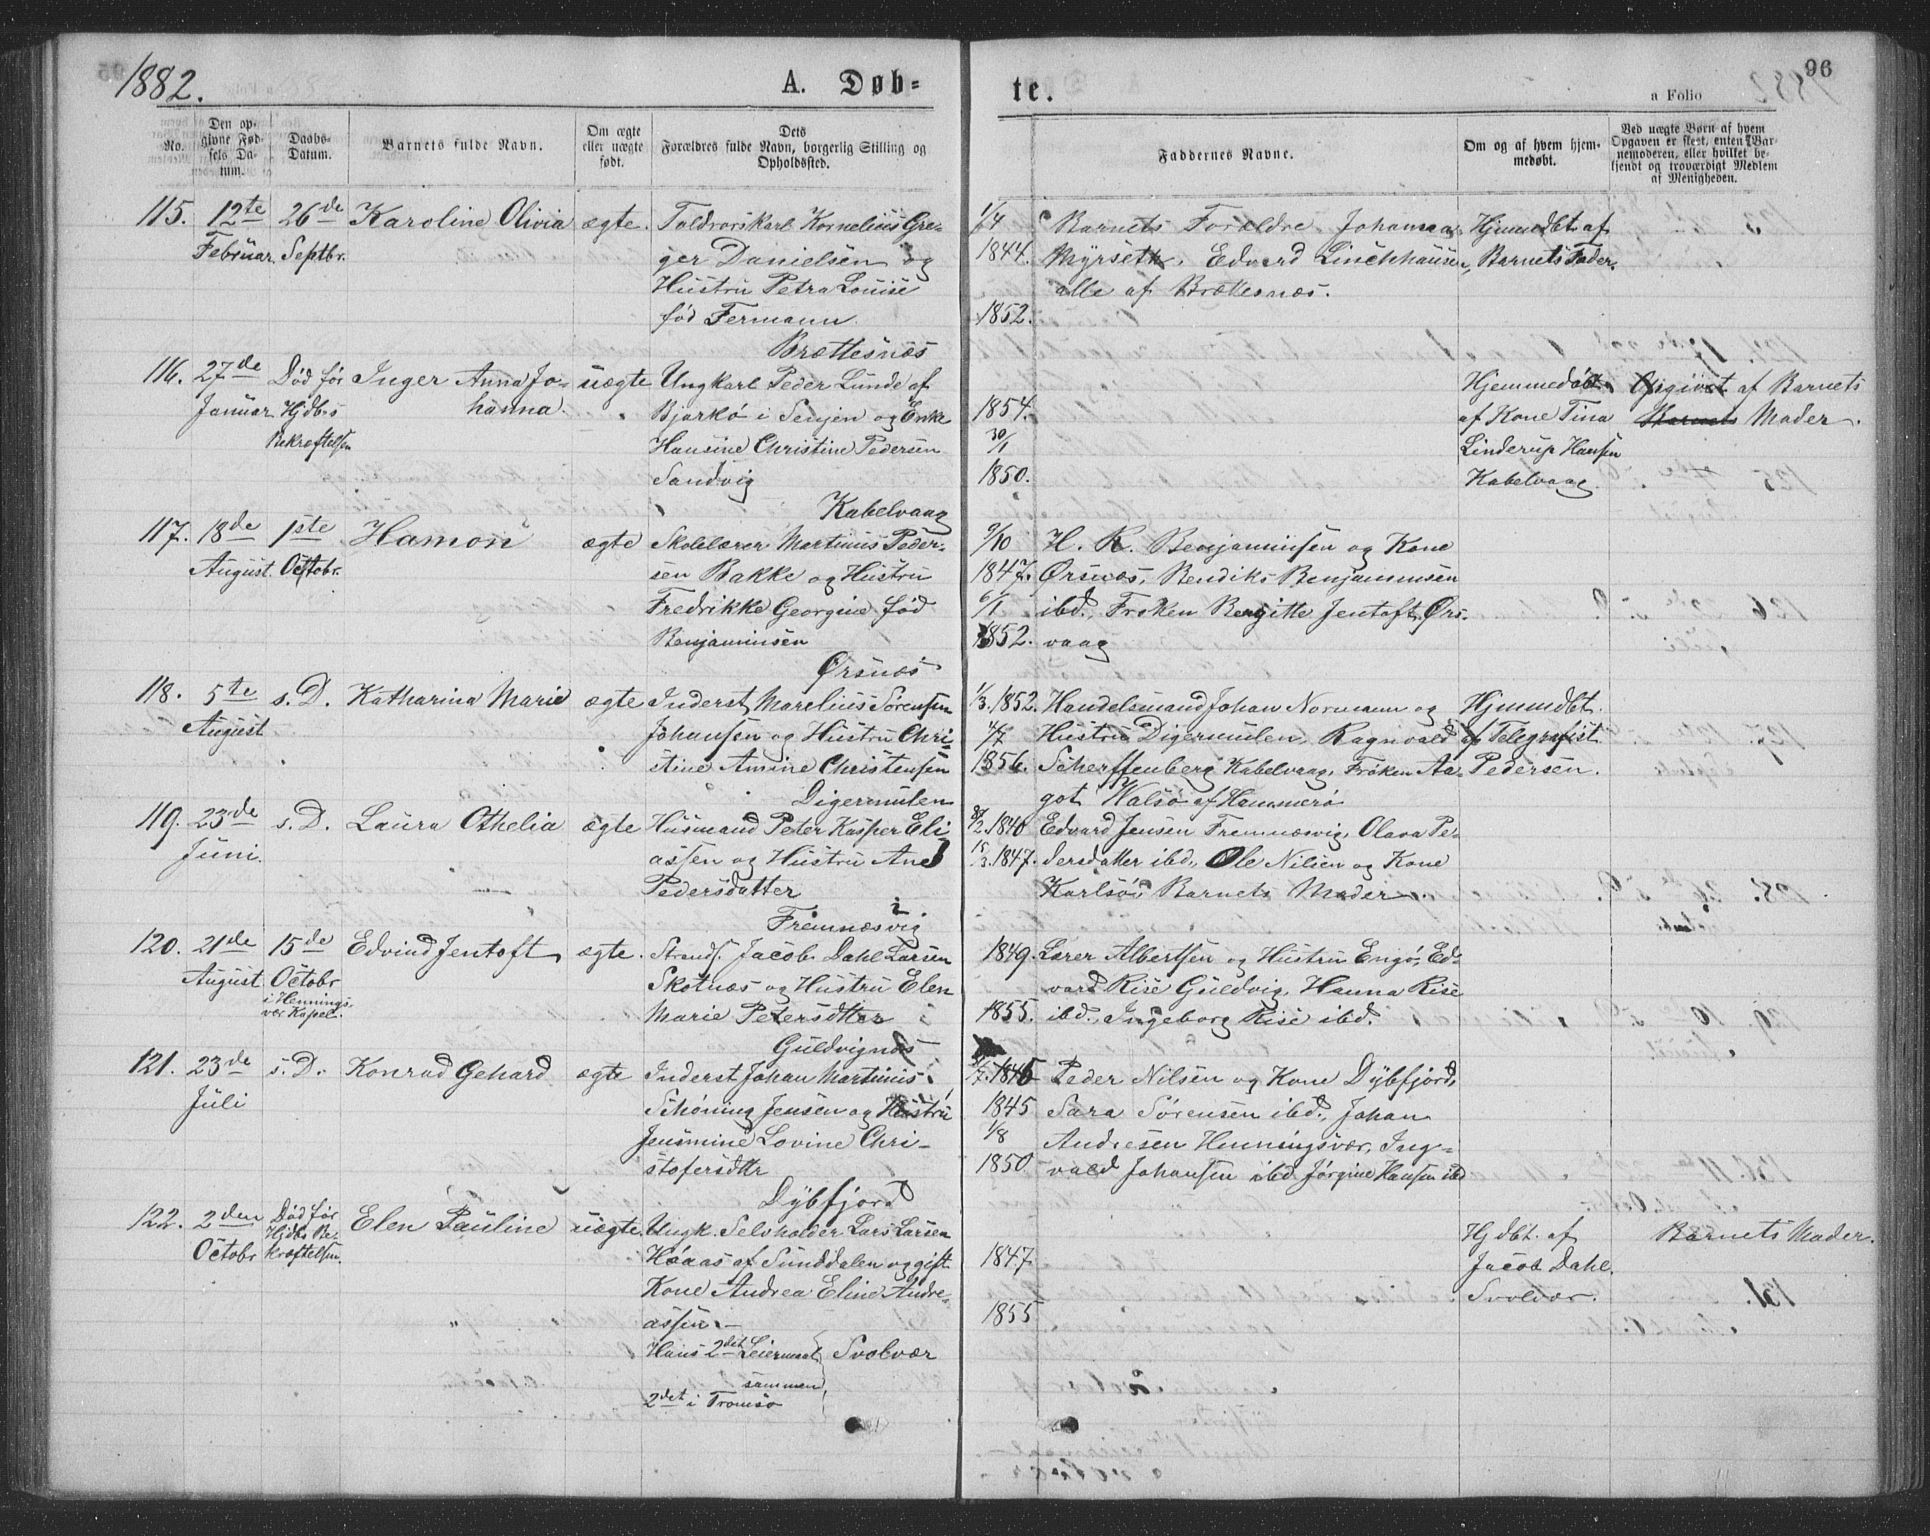 1882.
A. Døb-
te.
96
a Folio
No.
Den op-
givne Fød-
sels Da-
tum.
Daabs-
Datum.
Barnets fulde Navn.
Om ægte
eller uægte
født.
Dets
Forældres fulde Navn, borgerlig Stilling og
Opholdssted.
Faddernes Navne.
Om og af hvem hjem-
medøbt.
Ved uægte Børn af hvem
Opgaven er skeet, enten Bar-
nemoderen, eller hvilket be-
kjendt og troværdigt Medlem
af Menigheden.
115. 12te 26de Karoline Olivia ægte. Toldrorskarl Kornelius Gre-
Februar. Septbr. ger Danielsen og
Hustru Petra Louise
fød Fermann
Brættesnæs
1/4
1844.
1852.
Barnets Forældre Johanna
Myrseth, Edvard Linchhausen,
alle af Brættesnæs.
Hjemmedbt. af
Barnets Fader.
116. 27de Død før Inger Anna Jo- uægte Ungkarl Peder Lunde af
Januar Hjdbs hanna. Bjarkö i Senjen og Enke
Bekræftelsen Hansine Christine Pedersen
Sandvig
Kabelvaag
1854.
30/1
1850.
Hjemmedöbt
af Kone Tina
Linderup Hansen
Kabelvaag.
Opgivet af Barnets
Moder.
117. 18de 1ste Hamon ægte Skolelærer Martinus Peder-
August. Octobr. sen Bakke og Hustru
Fredrikke Georgine fød
Benjaminsen
Ørsnæs
9/10
1847.
6/1
1852.
H. R. Benjaminsen og Kone
Ørsnæs, Bendiks Benjaminsen
ibd., Frøken Bergitte Jentoft, Ørs-
vaag
118. 5te s. D. Katharina Marie ægte Inderst Marelius Sörensen
August Johansen og Hustru Chri-
stine Amine Christensen
Digermulen
1/3 1852.
1856.
Handelsmand Johan Normann og
Hustru Digermulen, Ragnvald
Scherffenberg Kabelvaag, Frøken Aa-
got Walsö af Hammerö
Hjemmdbt.
af Telegrafist
Pedersen.
119. 23de s. D. Laura Othelia ægte Husmand Peter Kasper Eli-
Juni. assen og Hustru Ane
Pedersdatter
Fremnæsvig
1840
15/3 1847.
Edvard Jensen Fremnæsvig, Olava Pe-
dersdatter ibd., Ole Nilsen og Kone
Karlsö, Barnets Moder.
120. 21de 15de Edvind Jentoft ægte. Strands. Jacob Dahl Larsen
August Octobr Skotnæs og Hustru Elen
i Hennings- Marie Petersdtter
vær Kapel. Guldvignæs
1849.
1855.
Lærer Albertsen og Hustru Engö, Ed-
vard Rise Guldvig, Hanna Rise
ibd., Ingeborg Rise ibd.
121. 23de s. D. Konrad Gehard ægte Inderst Johan Martinus
Juli Schöning Jensen og Hustru
Jensmine Lovine Chri-
stofersdttr
Dybfjord
1845
1/8
1850
Peder Nilsen og Kone Dybfjord,
Sara Sörensen ibd., Johan
Andresen Henningsvær, Ing-
vald Johansen ibd. Jörgine Hansen ibd
122. 2den Død før Elen Pauline uægte. Ungk. Selvholder Lars Larsen
Octobr Hjdbs Be- Hóaas af Sunddalen og gift
kræftelsen. Kone Andrea Eline Andre-
assen.
Hans 2det Leiermaal Svolvær
sammen
2det i Tromsö
1847
1855
Hjdbt. af
Jacob Dahl.
Svolvær.
Barnets Moder.